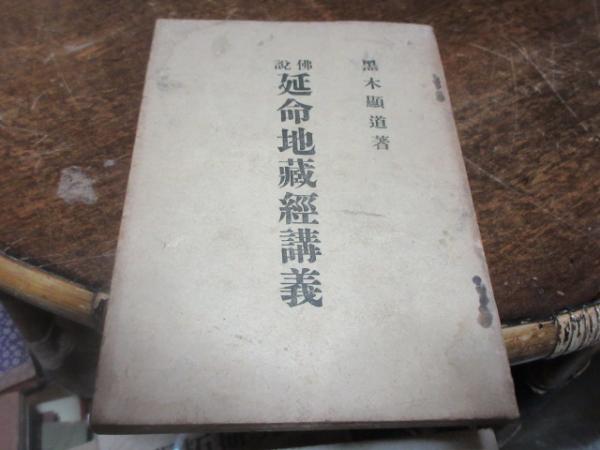 黒木顯道著
佛說
延命地藏經講義